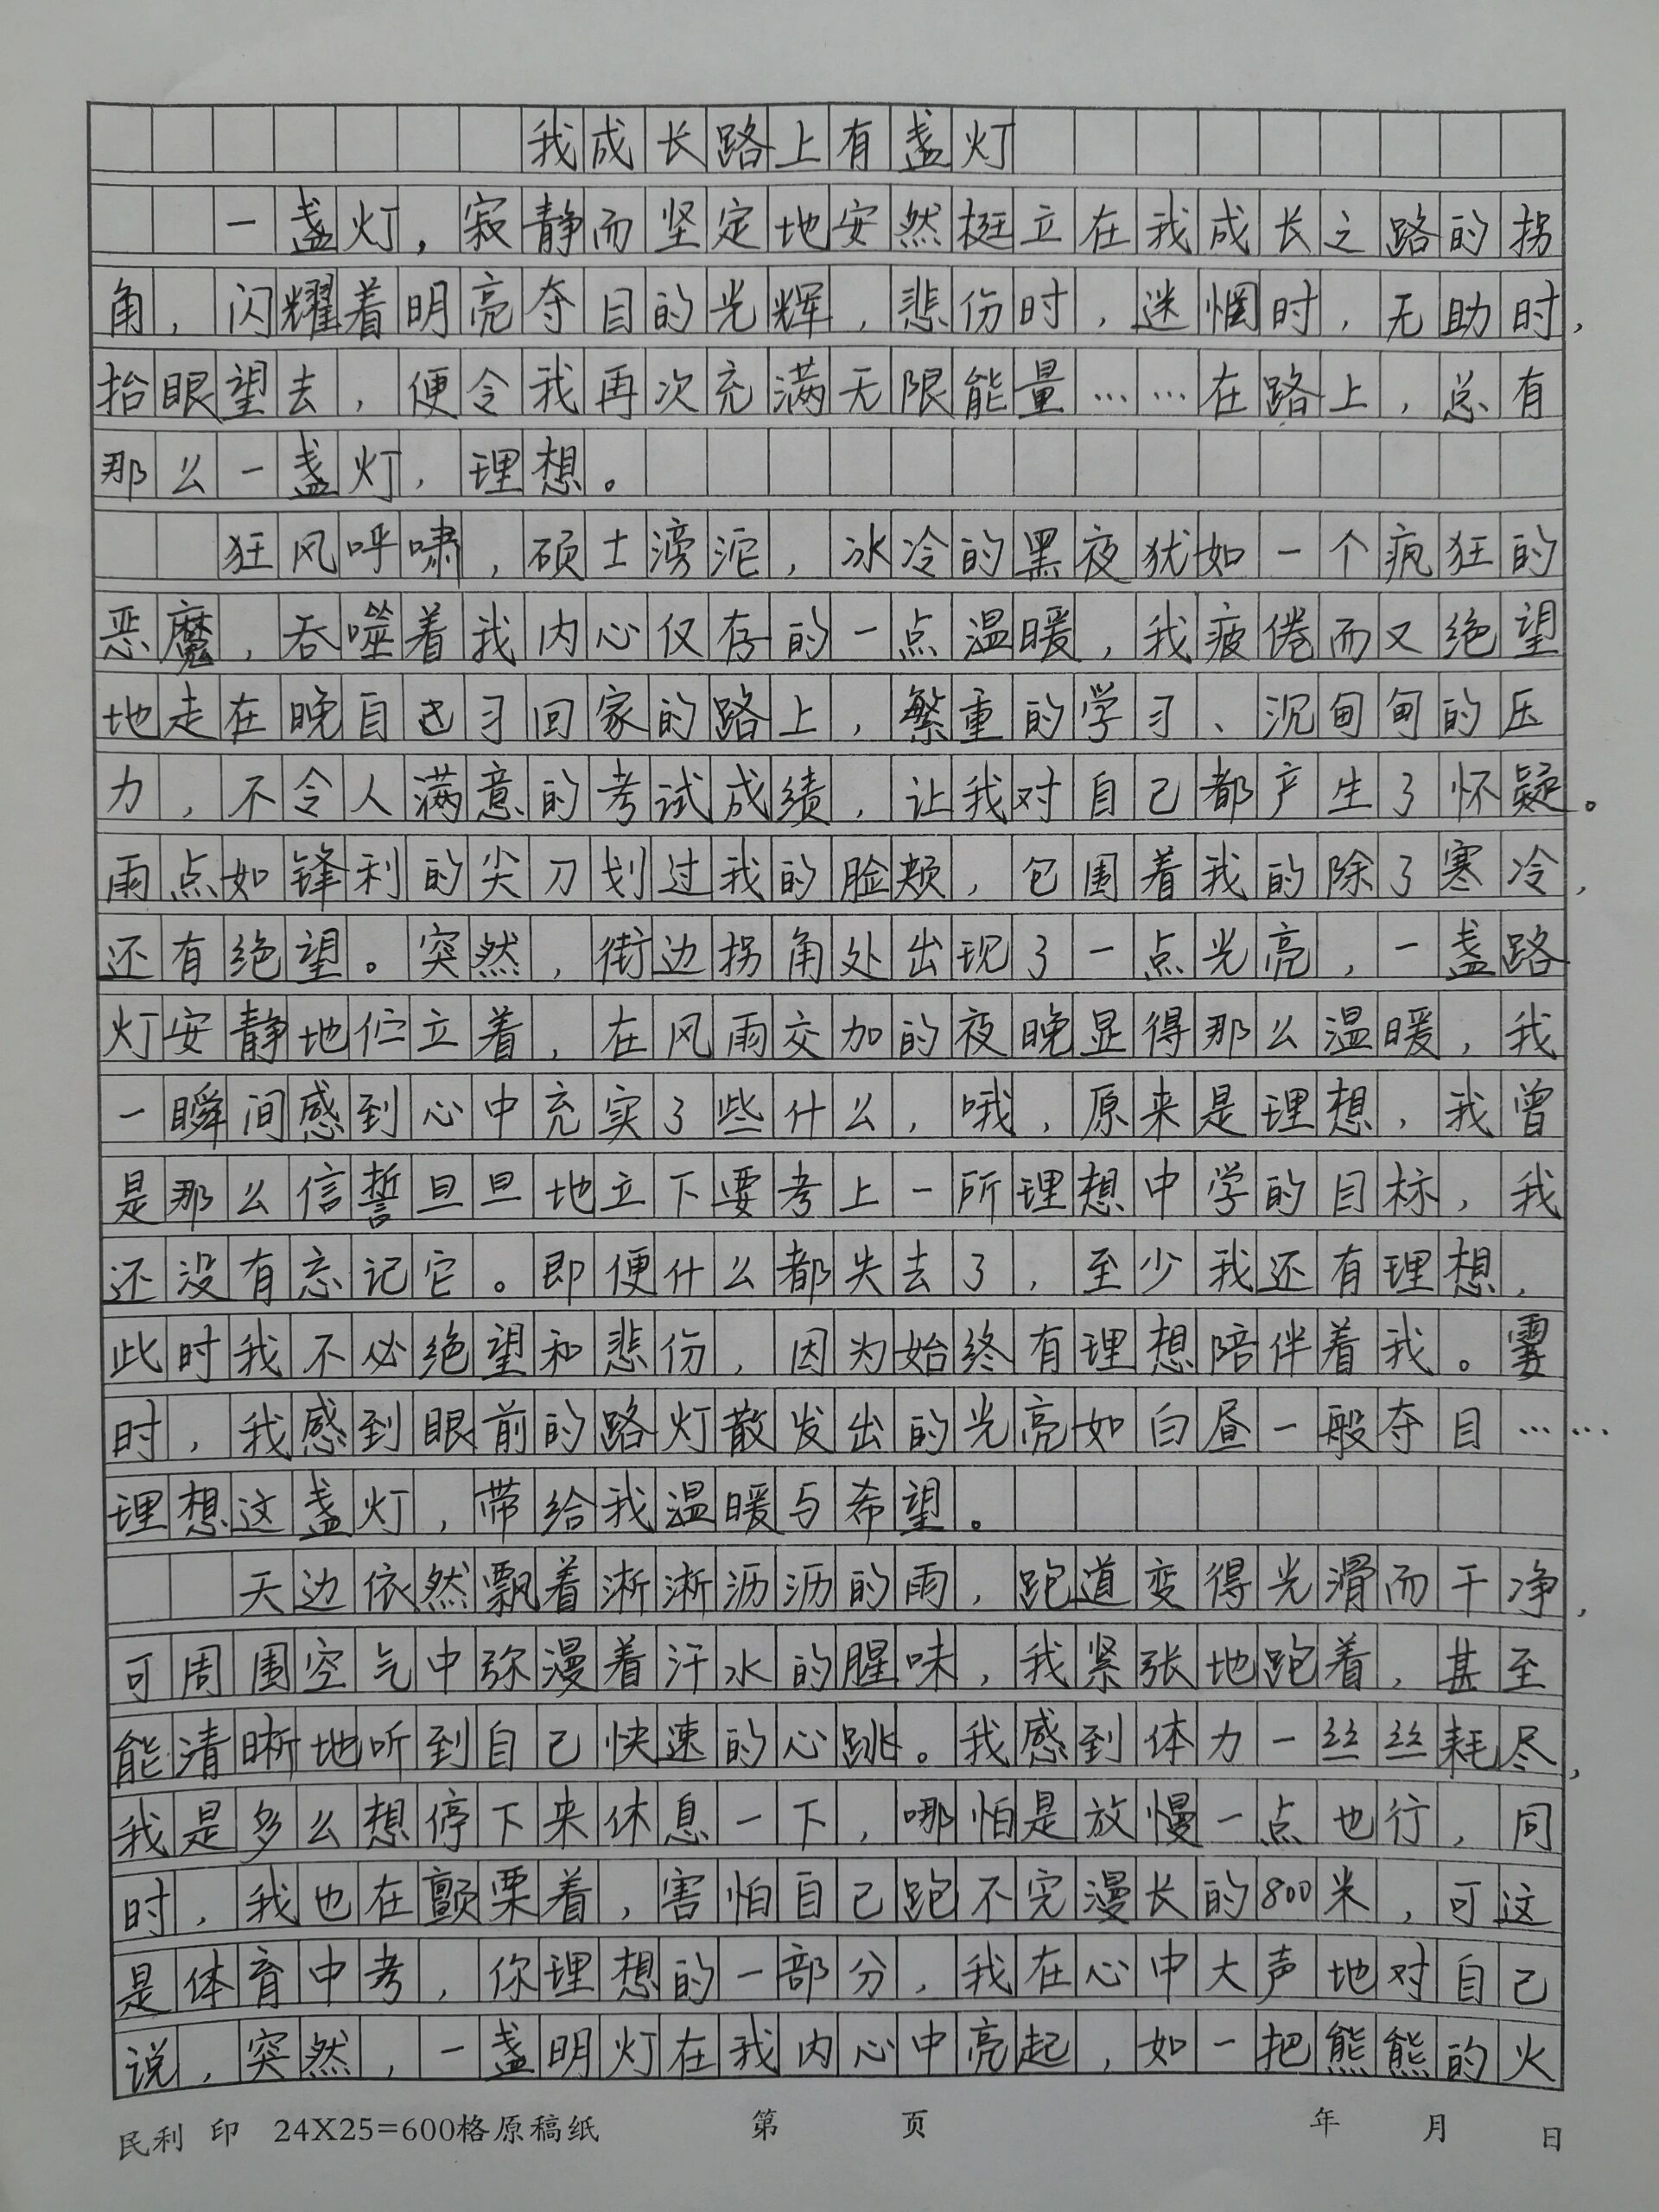 我成长路上有盏灯
一盏灯，寂静而坚定地安然挺立在我成长之路的拐
角，闪耀着明亮夺目的光辉，悲伤时，迷惘时，无助时，
抬眼望去，便令我再次充满无限能量……在路上，总有
那么一盏灯，理想。
狂风呼啸，硕士滂沱，冰冷的黑夜犹如一个疯狂的
恶魔，吞噬着我内心仅存的一点温暖，我疲倦而又绝望
地走在晚自习回家的路上，繁重的学习、沉甸甸的压
力，不令人满意的考试成绩，让我对自己都产生了怀疑。
雨点如锋利的尖刀划过我的脸颊，包围着我的除了寒冷，
还有绝望。突然，街边拐角处出现了一点光亮，一盏路
灯安静地伫立着，在风雨交加的夜晚显得那么温暖，我
一瞬间感到心中充实了些什么，哦，原来是理想，我曾
是那么信誓旦旦地立下要考上一所理想中学的目标，我
还没有忘记它。即便什么都失去了，至少我还有理想，
此时我不必绝望和悲伤，因为始终有理想陪伴着我。霎
时，我感到眼前的路灯散发出的光亮如白昼一般夺目……
理想这盏灯，带给我温暖与希望。
天边依然飘着淅淅沥沥的雨，跑道变得光滑而干净，
可周围空气中弥漫着汗水的腥味，我紧张地跑着，甚至
能清晰地听到自己快速的心跳。我感到体力一丝丝耗尽，
我是多么想停下来休息一下，哪怕是放慢一点也行，同
时，我也在颤栗着，害怕自己跑不完漫长的800米，可这
是体育中考，你理想的一部分，我在心中大声地对自己
说，突然，一盏明灯在我内心中亮起，如一把熊熊的火
民利 印 24X25=600格原稿纸 第 页 年 月 日